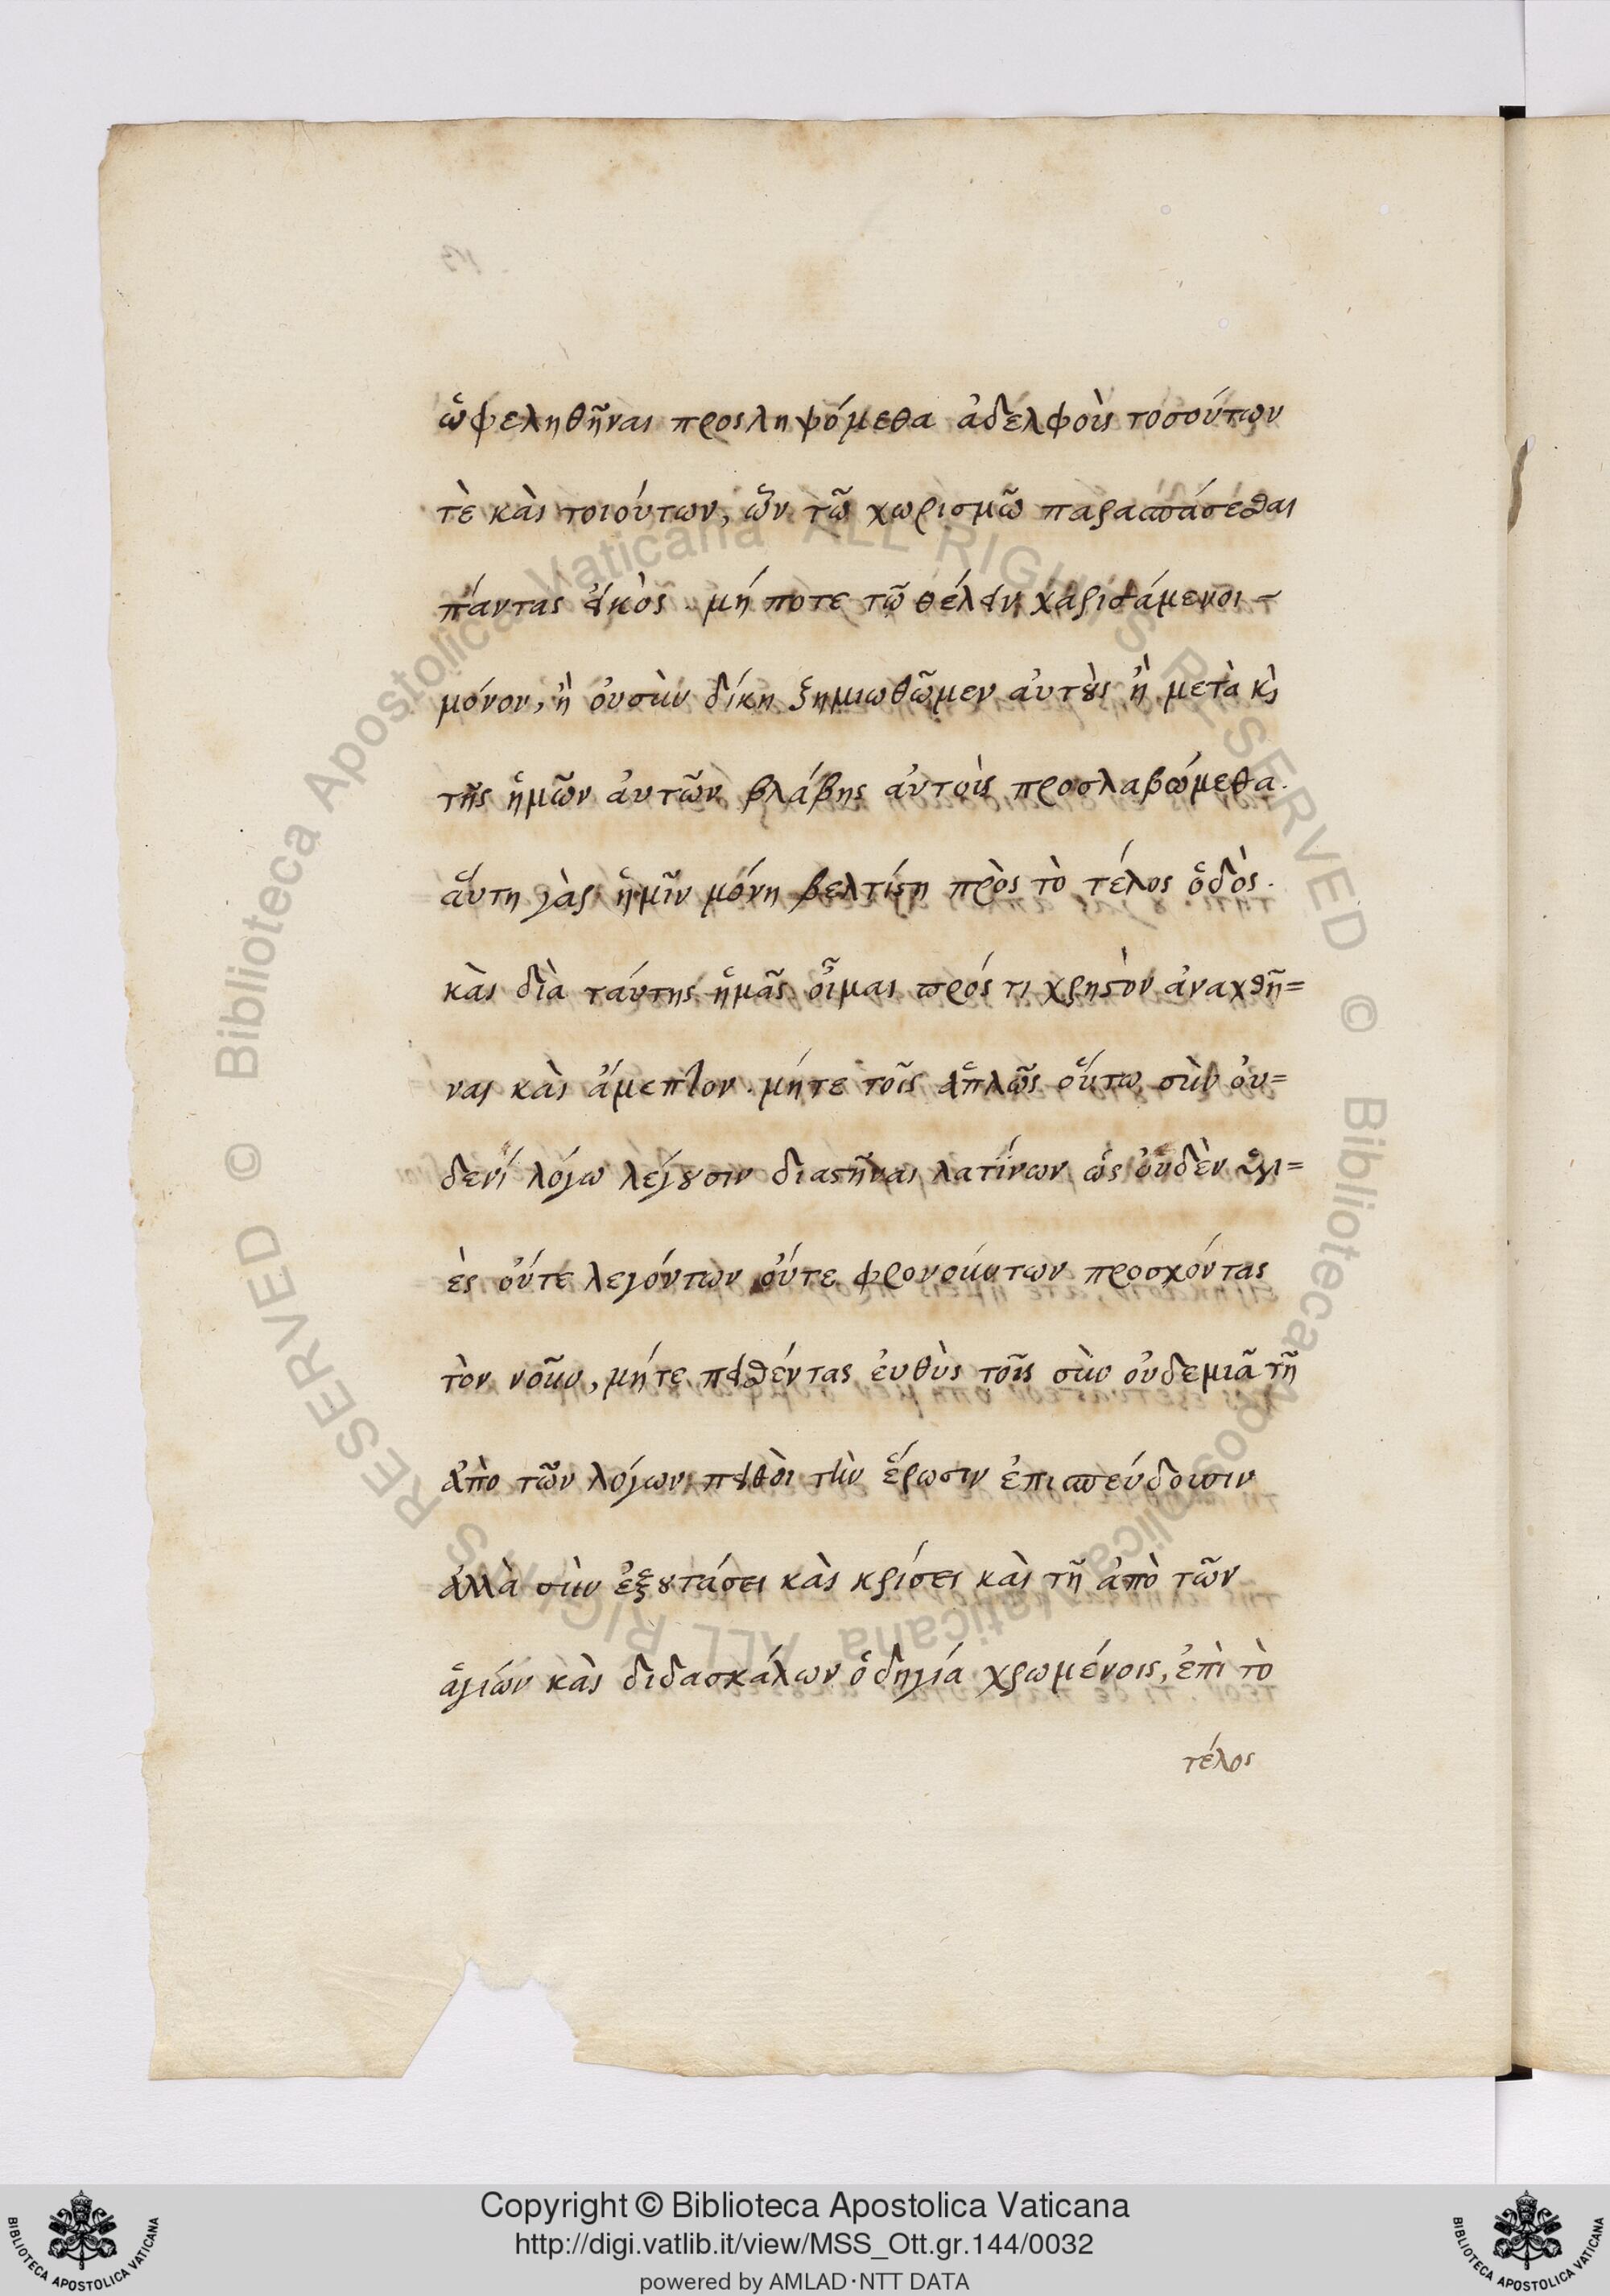 ὠφεληθῆναι προσληψόμεθα ἀδελφοὺς τοσούτων
τὲ καὶ τοιούτων, ὧν τῶ χωρισμῶ παρασπάσεσθαι
πάντας εἰκὸς. μή ποτε τῶ θέλειν χαρισάμενοι
μόνον, ἢ οὐ σὺν δίκη ζημιωθῶμεν αὐτοὺς ἢ μετὰ καὶ
τῆς ἡμῶν αὐτῶν βλάβης αὐτοὺς προσλαβώμεθα.
αὕτη γὰρ ἡμῖν μόνη βελτίστη πρὸς τὸ τέλος ὁδὸς.
καὶ διὰ ταύτης ἡμᾶς οἶμαι πρός τι χρηστὸν ἀναχθῆ=
ναι καὶ ἄμεπτον. μήτε τοῖς ἁπλῶς οὕτω σὺν οὐ=
δενὶ λόγω λέγουσιν διαστῆναι λατίνων ὡς οὐδὲν ὑγι=
ὲς οὔτε λεγόντων οὔτε φρονούντων προσχόντας
τὸν νοῦν, μήτε πεισθέντας εὐθὺς τοῖς σὺν οὐδεμιᾶ τῆ
ἀπὸ τῶν λόγων πειθοῖ τὴν ἕρωσιν ἐπισπεύδουσιν
ἀλλὰ σὺν ἐξουτάσει καὶ κρίσει καὶ τῆ ἀπὸ τῶν
ἁγιών καὶ διδασκάλων ὁδηγία χρωμένοις, ἐπὶ τὸ
τέλος
Copyright © Biblioteca Apostolica Vaticana
http://digi.vatlib.it/view/MSS_Ott.gr.144/0032
powered by AMLAD·NTT DATA